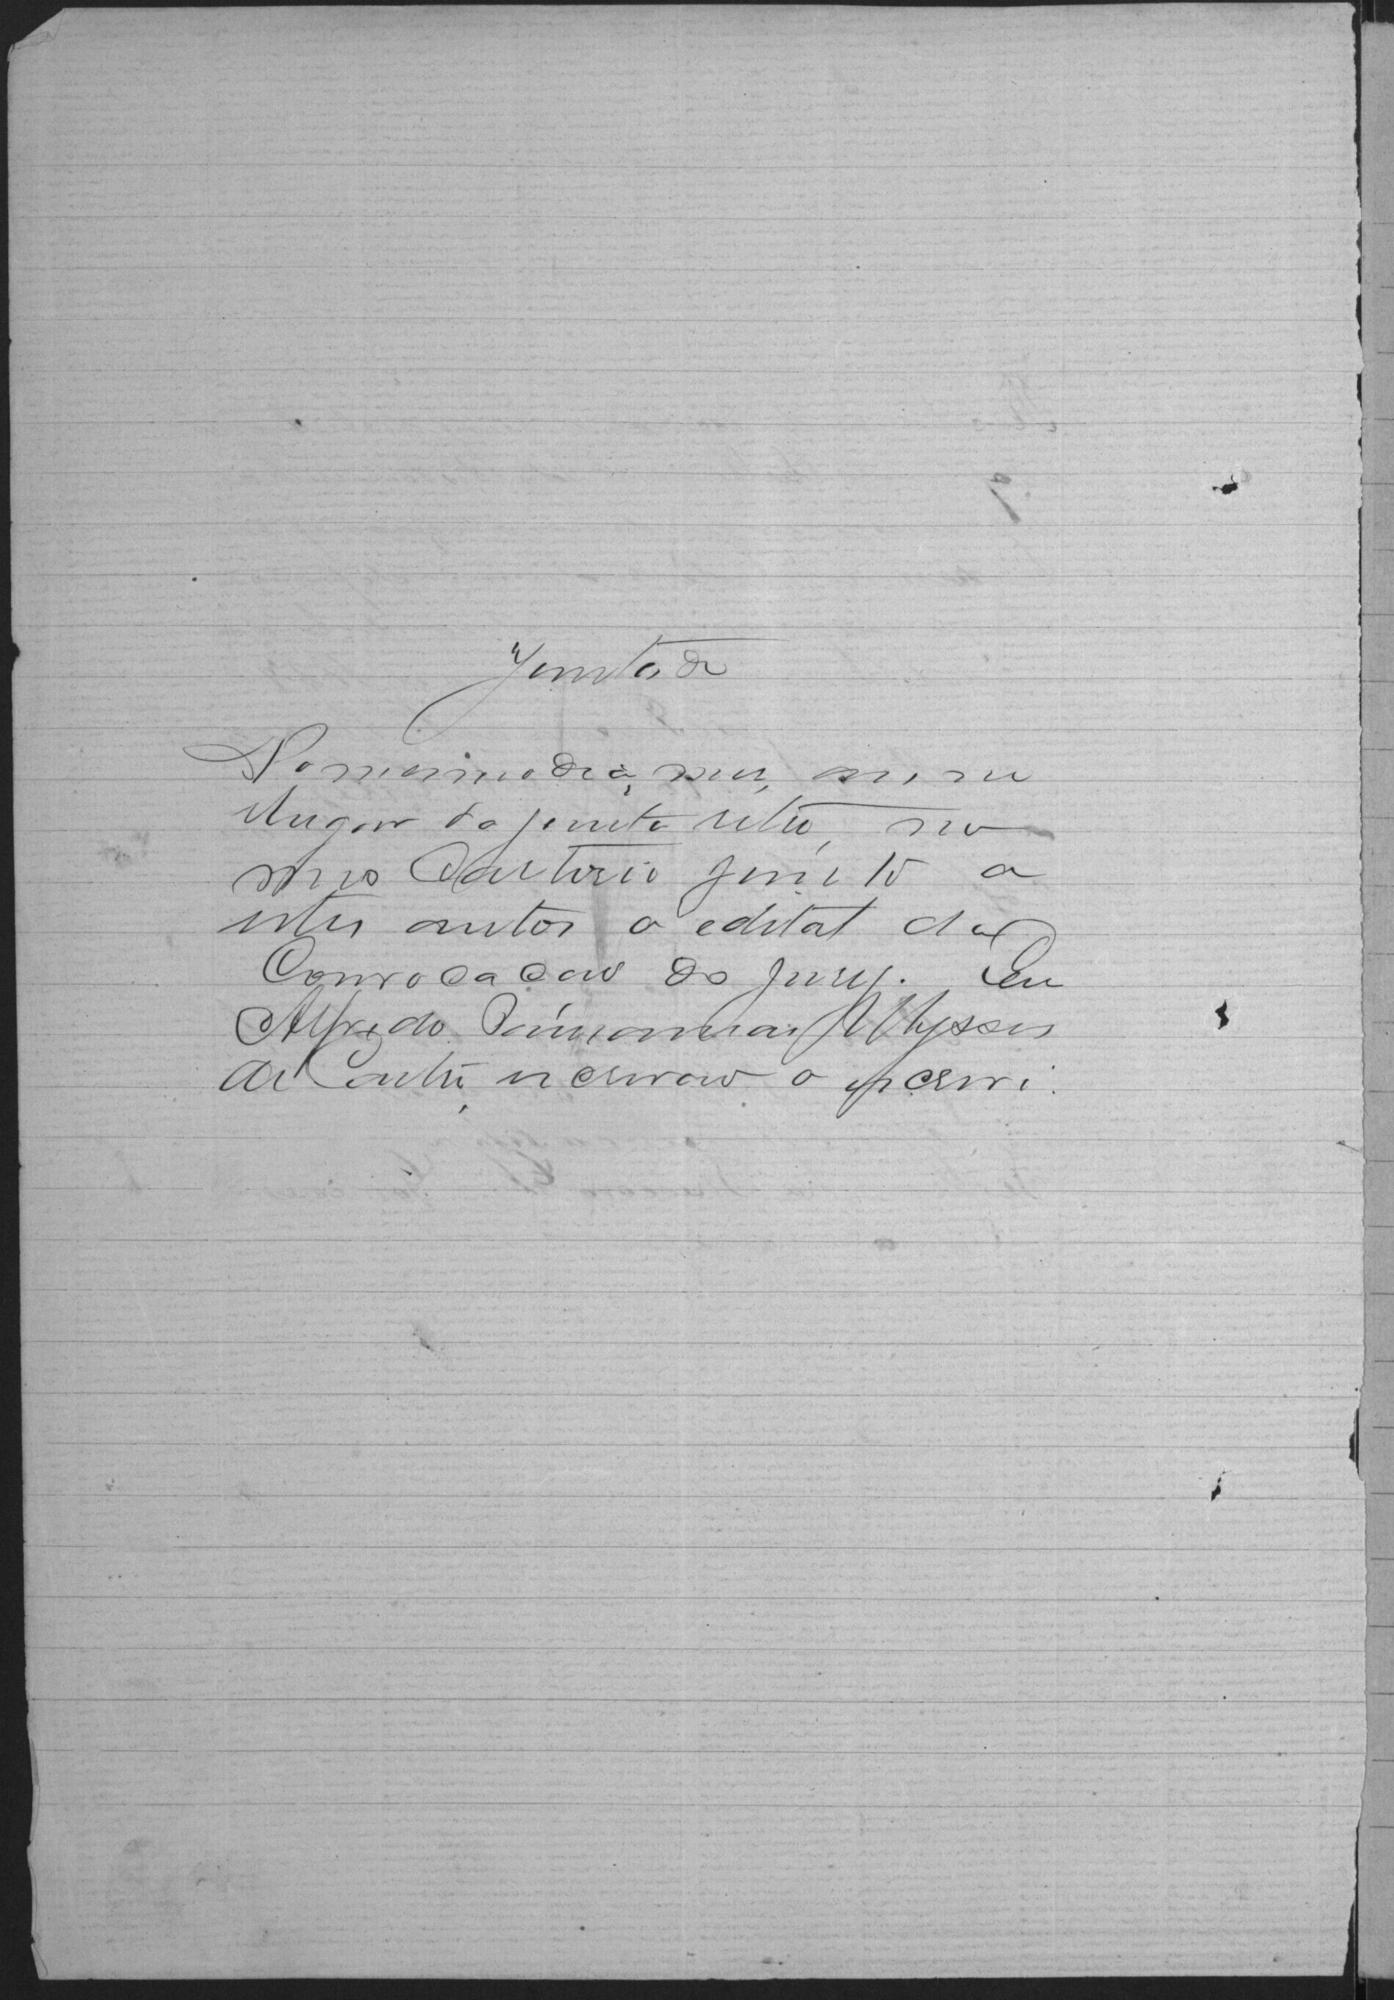 Juntada
No mesmo dia, mez, anno e
lugar da junta retro, no
meo Cartorio junto a
estes autos o edital da
Convocacao do jury. Eu
Alfredo Ulysses
de Castro, escrivao o escrevi.